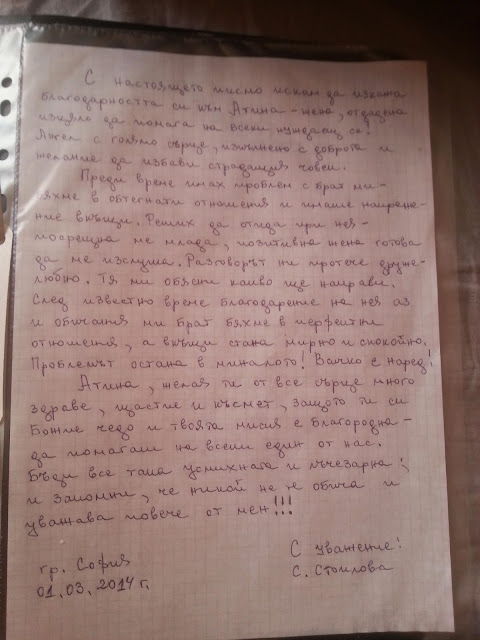 С настоящето писмо искам да изкажа
благодарността си към Атина - жена, отдадена
изцяло да помага на всеки нуждаещ се!
Ангел с голямо сърце, изпълнено с доброта и
желание да избави страдащия човек.
Преди време имах проблем с брат ми -
бяхме в обтегнати отношения и имаше напреже-
ние вкъщи. Реших да отида при нея -
посрещна ме млада, позитивна жена готова
да ме изслуша. Разговорът ни протече друже-
любно. Тя ми обясни какво ще направи.
След известно време благодарение на нея аз
и обичания ми брат бяхме в перфектни
отношения, а вкъщи стана мирно и спокойно.
Проблемът остана в миналото! Всичко е наред!
Атина, желая ти от все сърце много
здраве, щастие и късмет, защото ти си
Божие чедо и твоята мисия е благородна -
да помагаш на всеки един от нас.
Бъди все така усмихната и лъчезарна!
и запомни, че никой не те обича и
уважава повече от мен!!!
С уважение:
гр. София
С. Стоилова
01.03.2014 г.